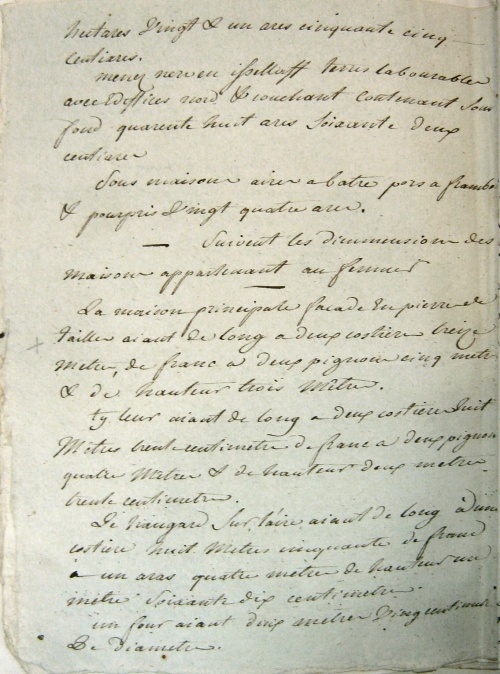 hectares Vingt & un ares cinquante cinq
Centiares.
menez nerven issellaff terres labourables
avec Edffices nord & couchant contenant Sous
fond quarente huit ares Soixante deux
centiares
Sous maisons aires a batre pors a frambois
& pourpris Vingt quatre ares.
Suivent les dimmensions des
maisons appartenant au fermier
La maison principale facade En pierre de
Taille aiant de long a deux costière treize
metres, de franc a deux pignons cinq metres
& de hauteur trois Mètres.
ty leur aiant de long a deux costière huit
Mètres trente centimetre de franc a deux pignons
quatre Mètres & de hauteur deux metres
trente centimetres.
Le hangard Sur laire aiant de long à une
costière huit Mètres cinquante de franc
a un aras quatre metre de hauteur un
mètre Soixante dix centimetre
un four aiant deux mètres Vingt centimetre
De diametre.